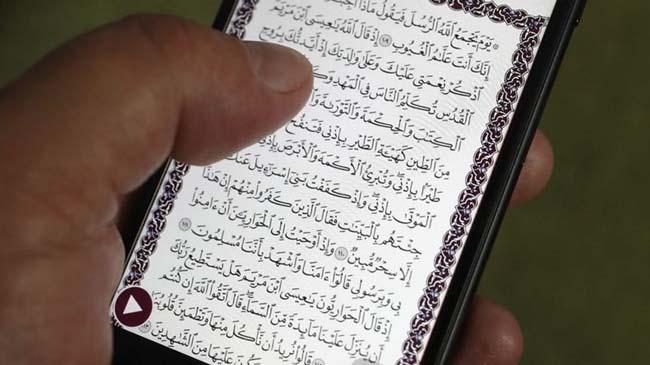 ۞ يَوْمَ يَجْمَعُ ٱللَّهُ ٱلرُّسُلَ فَيَقُولُ مَاذَآ
إِنَّكَ أَنتَ عَلَّٰمُ ٱلْغُيُوبِ ١٠٩ إِذْ قَالَ ٱللَّهُ يَٰعِيسَى ٱبْنَ مَرْيَمَ
ٱذْكُرْ نِعْمَتِي عَلَيْكَ وَعَلَىٰ وَٰلِدَتِكَ إِذْ أَيَّدتُّكَ بِرُوحِ
ٱلْقُدُسِ تُكَلِّمُ ٱلنَّاسَ فِي ٱلْمَهْدِ
ٱلْكِتَٰبَ وَٱلْحِكْمَةَ وَٱلتَّوْرَىٰةَ
مِنَ ٱلطِّينِ كَهَيْـَٔةِ ٱلطَّيْرِ بِإِذْنِي فَتَنفُخُ
طَيْرًۢا بِإِذْنِي وَتُبْرِئُ ٱلْأَكْمَهَ وَٱلْأَبْرَصَ بِإِذْنِي
ٱلْمَوْتَىٰ بِإِذْنِي وَإِذْ كَفَفْتُ بَنِيٓ إِسْرَٰٓءِيلَ عَنكَ
جِئْتَهُم بِٱلْبَيِّنَٰتِ فَقَالَ ٱلَّذِينَ كَفَرُوا۟ مِنْهُمْ إِنْ هَٰذَآ
إِلَّا سِحْرٌ مُّبِينٌ ١١٠ وَإِذْ أَوْحَيْتُ إِلَى ٱلْحَوَارِيِّـۧنَ أَنْ ءَامِنُوا۟
بِي وَبِرَسُولِي قَالُوٓا۟ ءَامَنَّا وَٱشْهَدْ بِأَنَّنَا مُسْلِمُونَ ١١١
إِذْ قَالَ ٱلْحَوَارِيُّونَ يَٰعِيسَى ٱبْنَ مَرْيَمَ هَلْ يَسْتَطِيعُ رَبُّكَ
أَن يُنَزِّلَ عَلَيْنَا مَآئِدَةً مِّنَ ٱلسَّمَآءِ قَالَ ٱتَّقُوا۟ ٱللَّهَ إِن كُنتُم
قَالُوا۟ نُرِيدُ أَن نَّأْكُلَ مِنْهَا وَتَطْمَئِنَّ قُلُوبُنَا
وَنَكُونَ عَلَيْهَا مِنَ ٱلشَّٰهِدِينَ